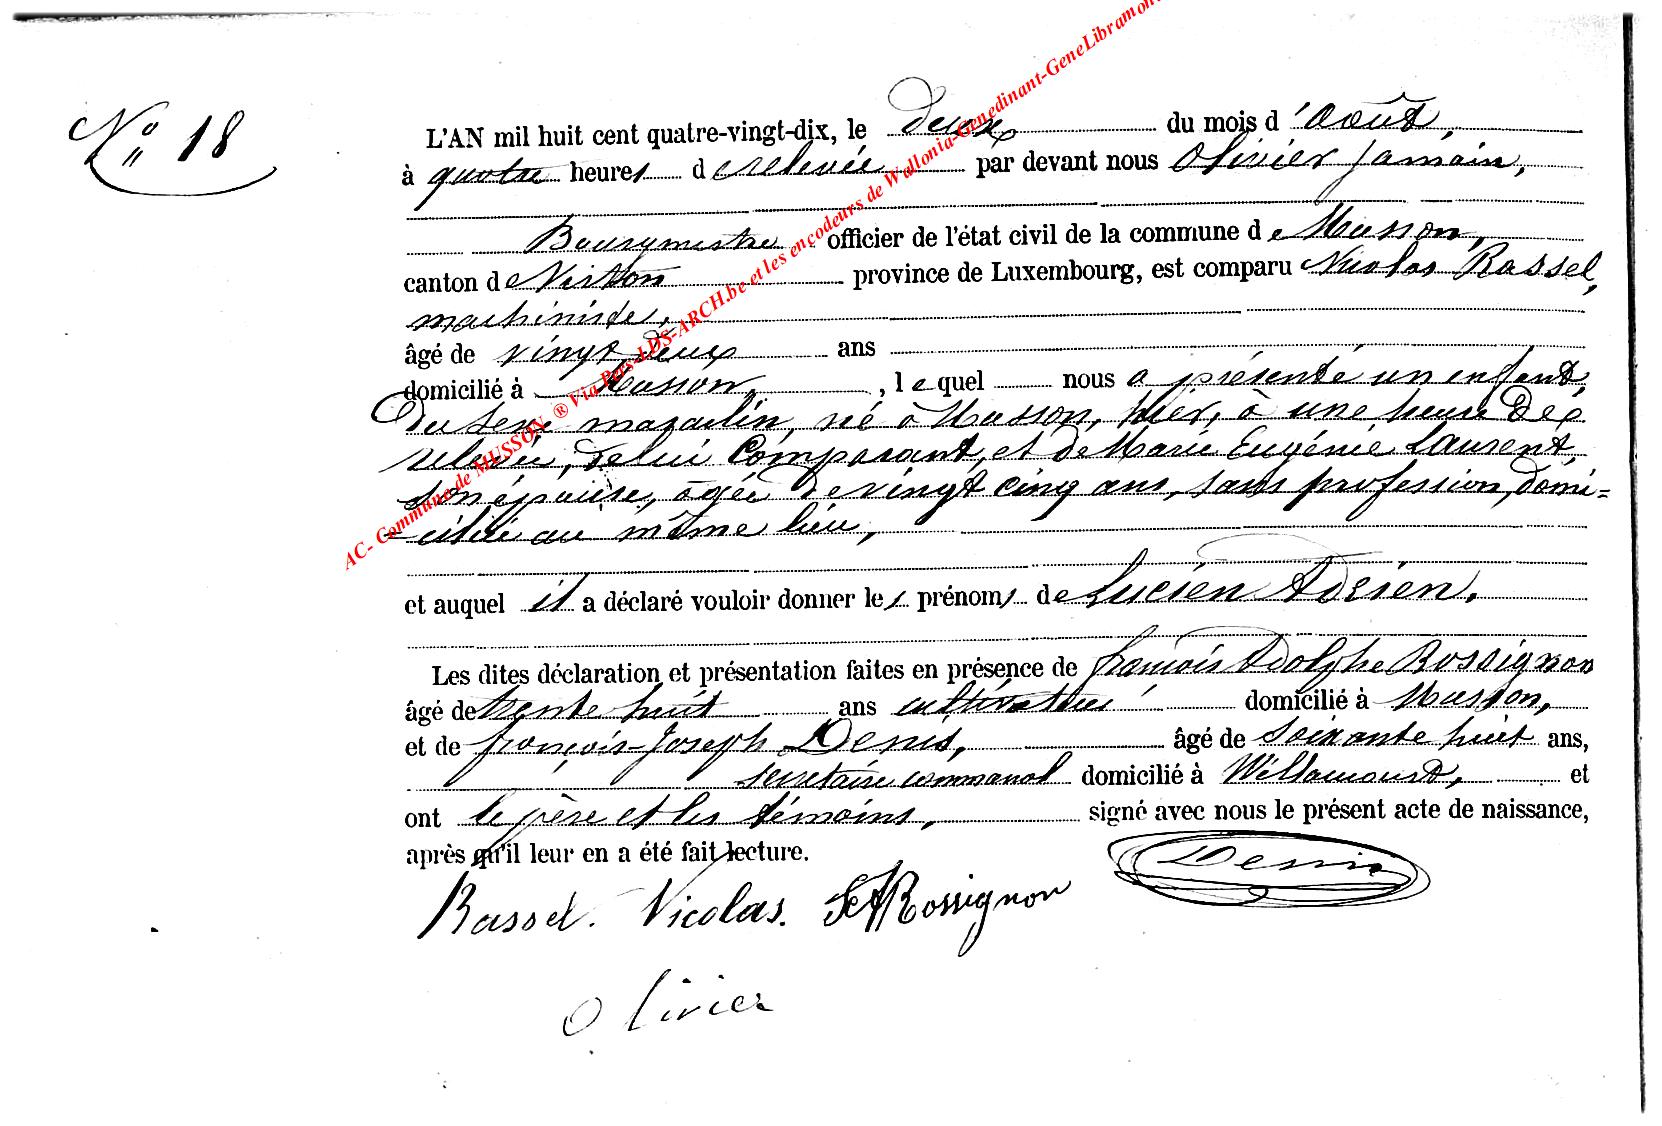 N° 18
L'AN mil huit cent quatre-vingt-dix, le deux du mois d'Août,
à quatre heures de relevée par devant nous Olivier Jamain,
Bourgmestre, officier de l'état civil de la commune de Musson,
canton de Virton province de Luxembourg, est comparu Nicolas Rassel,
machiniste,
âgé de vingt deux ans
domicilié à Musson, , lequel nous a présenté un enfant,
du sexe masculin, né à Musson, hier, à une heure de
relevée, de lui Comparant, et de Marie Eugénie Laurent,
son épouse, âgée de vingt cinq ans, sans profession, domi=
ciliée au même lieu,
et auquel il a déclaré vouloir donner les prénoms de Lucien Adrien.
Les dites déclaration et présentation faites en présence de françois Adolphe Rossignon
âgé de trente huit ans cultivateur domicilié à Musson,
et de françois-Joseph Denis, âgé de soixante huit ans,
secrétaire communal domicilié à Willancourt, et
ont le père et les témoins, signé avec nous le présent acte de naissance,
après qu'il leur en a été fait lecture.
Rassel. Nicolas. Rossignon Denis
Olivier
AC- Commune de MUSSON ® Via Pers-LDS-ARCH.be et les encodeurs de Wallonia-Genedinant-GeneLibramont